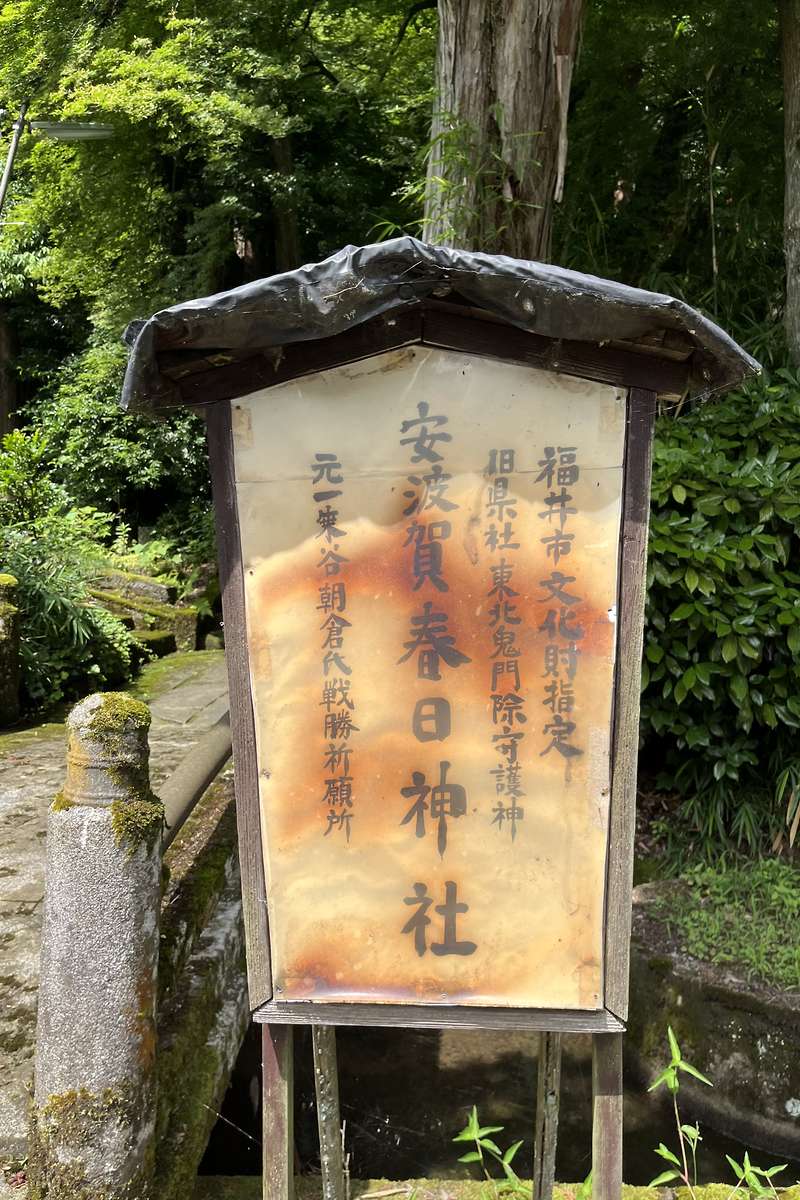 福井市文化財指定
旧県社 東北鬼門除守護神
安波賀春日神社
元一乗谷朝倉代戦勝祈願所